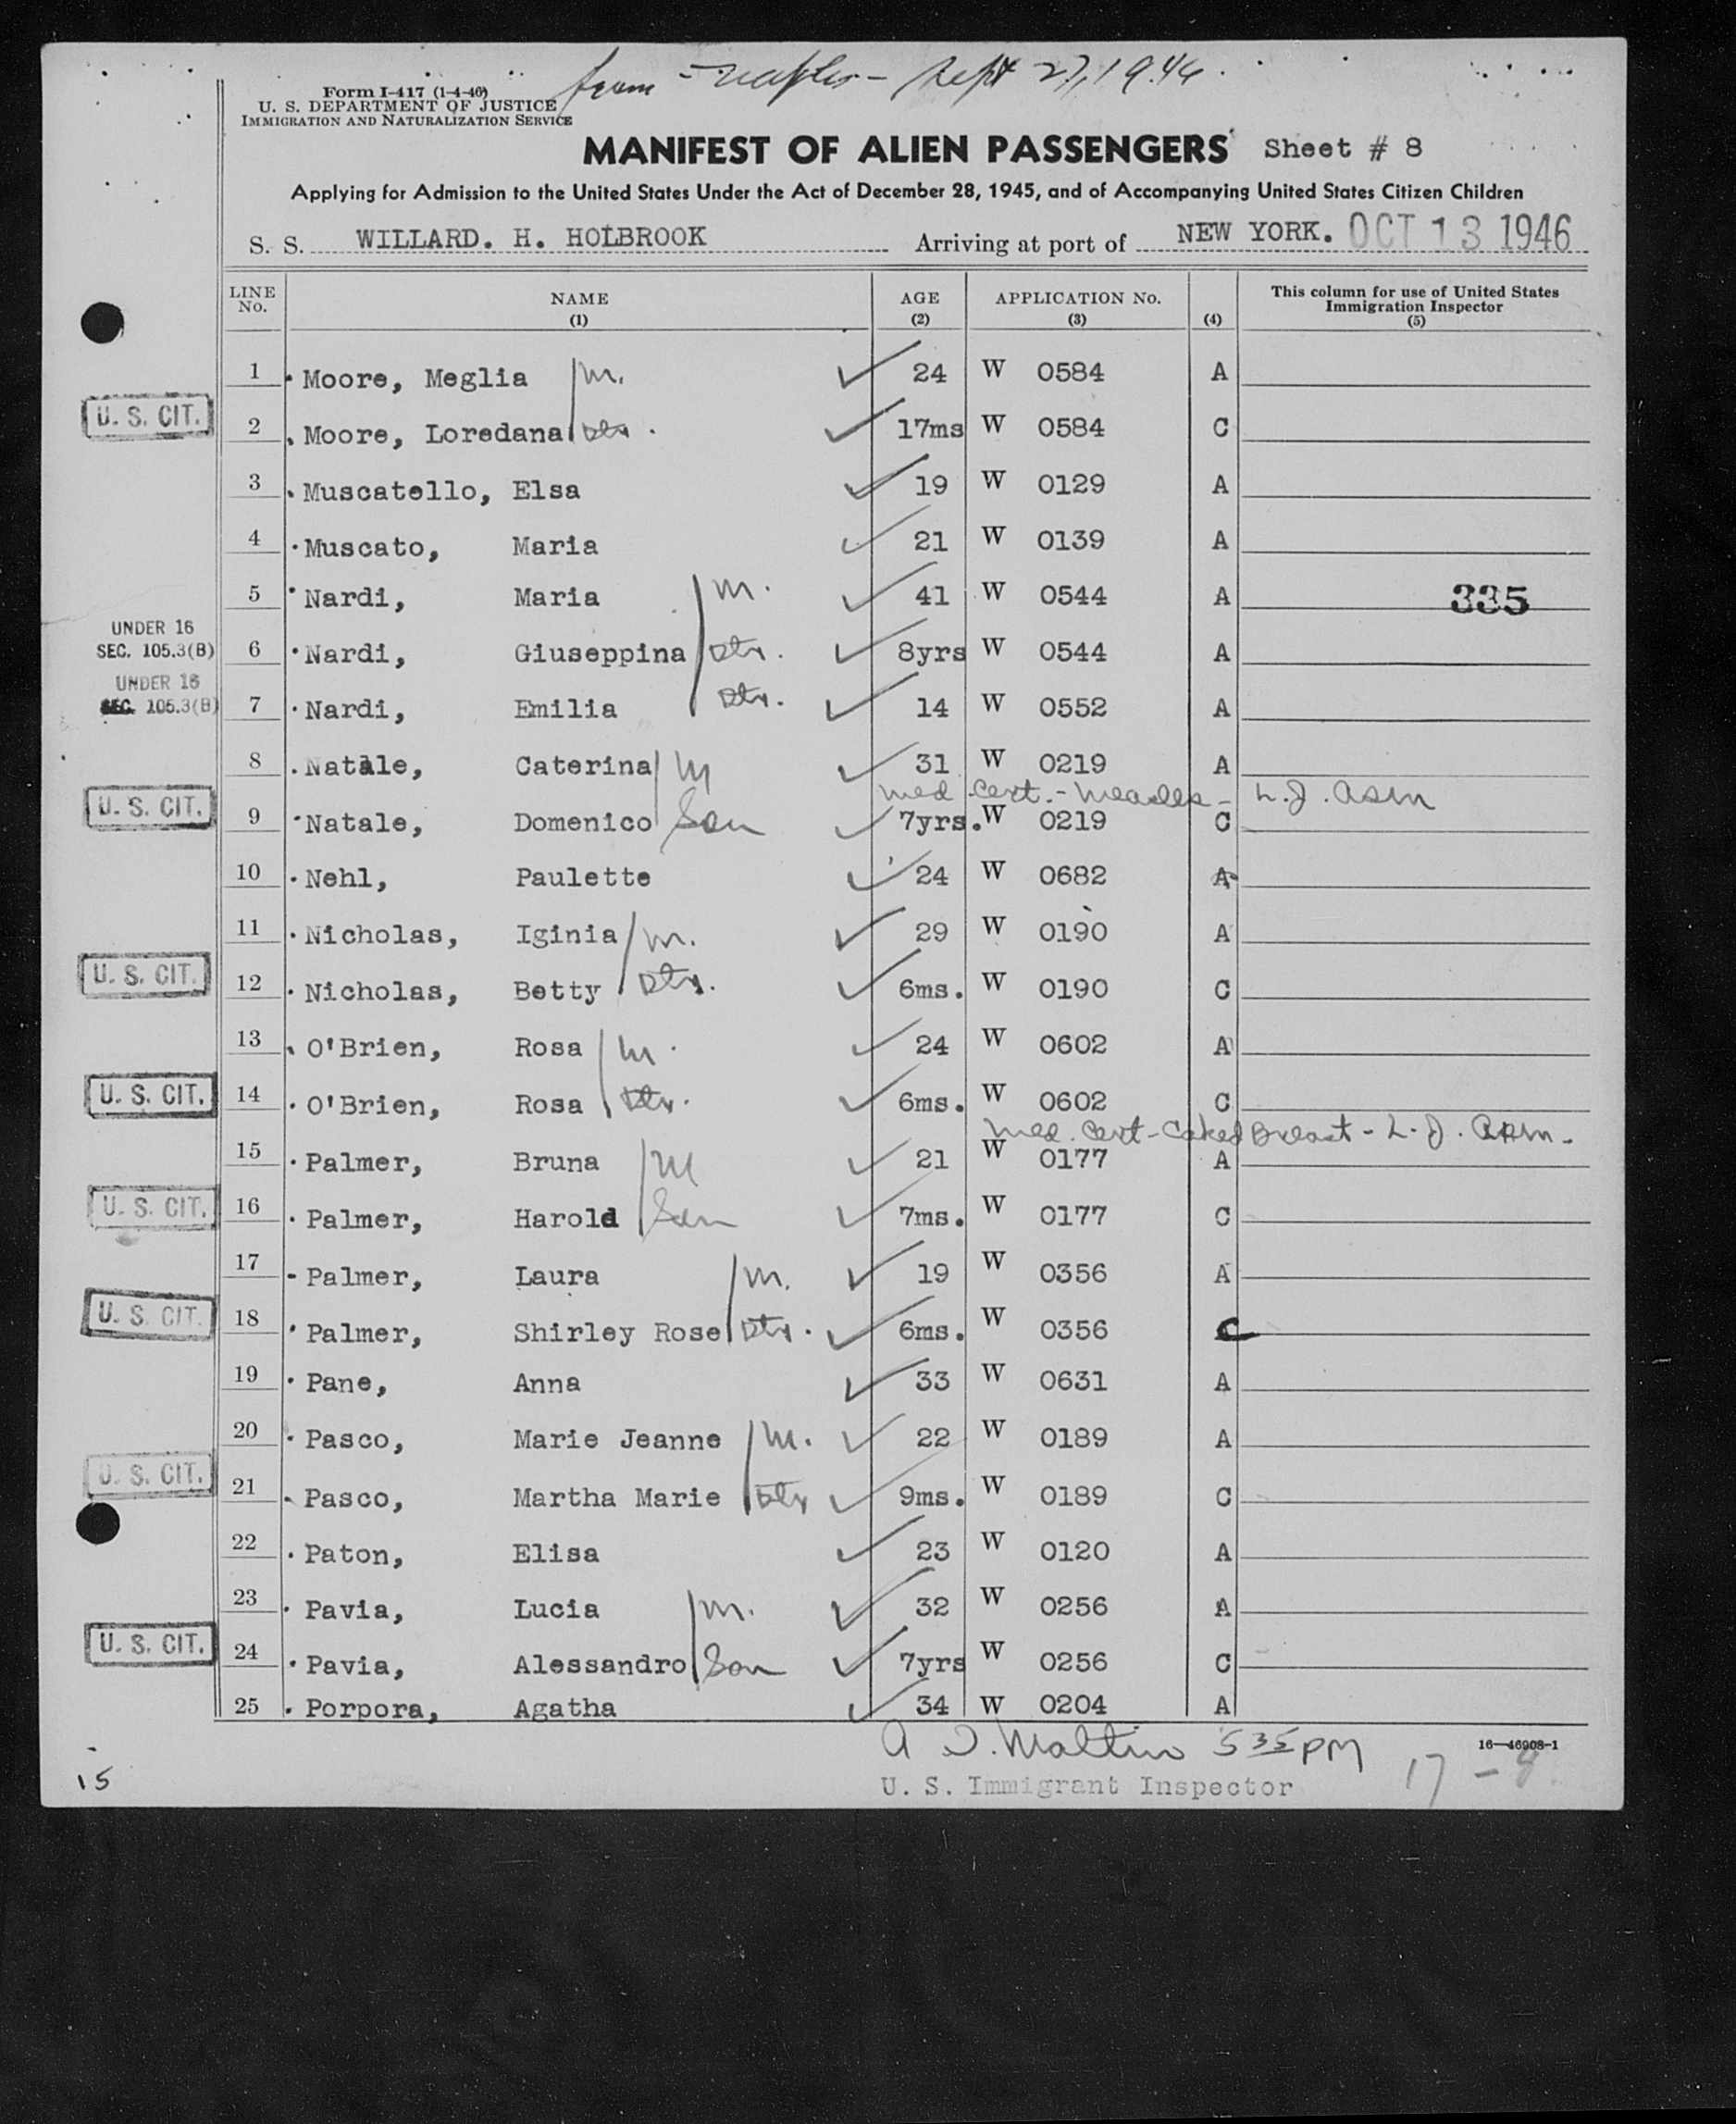 from - Naples - Sept 27, 1946.
Form I-417 (1-4-46)
U. S. DEPARTMENT OF JUSTICE
IMMIGRATION AND NATURALIZATION SERVICE
MANIFEST OF ALIEN PASSENGERS Sheet # 8
Applying for Admission to the United States Under the Act of December 28, 1945, and of Accompanying United States Citizen Children
S. S. WILLARD. H. HOLBROOK Arriving at port of NEW YORK. OCT 13 1946
LINE No. NAME (1) AGE (2) APPLICATION No. (3) (4) This column for use of United States Immigration Inspector (5)
1 Moore, Meglia m. 24 W 0584 A
U. S. CIT. 2 Moore, Loredana Dtr. 17ms W 0584 C
3 Muscatello, Elsa 19 W 0129 A
4 Muscato, Maria 21 W 0139 A
5 Nardi, Maria m. 41 W 0544 A 335
UNDER 16 SEC. 105.3(B) 6 Nardi, Giuseppina Dtr. 8yrs W 0544 A
UNDER 16 SEC. 105.3(B) 7 Nardi, Emilia Dtr. 14 W 0552 A
8 Natale, Caterina M 31 W 0219 A
med cert. - measles - L.J. asm
U. S. CIT. 9 Natale, Domenico Son 7yrs. W 0219 C
10 Nehl, Paulette 24 W 0682 A
11 Nicholas, Iginia m. 29 W 0190 A
U. S. CIT. 12 Nicholas, Betty Dtr. 6ms. W 0190 C
13 O'Brien, Rosa m. 24 W 0602 A
U. S. CIT. 14 O'Brien, Rosa Dtr. 6ms. W 0602 C
med. cert - caked Breast - L. J. asm -
15 Palmer, Bruna M 21 W 0177 A
U. S. CIT. 16 Palmer, Harold Son 7ms. W 0177 C
17 Palmer, Laura m. 19 W 0356 A
U. S. CIT. 18 Palmer, Shirley Rose Dtr. 6ms. W 0356 C
19 Pane, Anna 33 W 0631 A
20 Pasco, Marie Jeanne M. 22 W 0189 A
U. S. CIT. 21 Pasco, Martha Marie Dtr 9ms. W 0189 C
22 Paton, Elisa 23 W 0120 A
23 Pavia, Lucia m. 32 W 0256 A
U. S. CIT. 24 Pavia, Alessandro Son 7yrs W 0256 C
25 Porpora, Agatha 34 W 0204 A
A 535 PM 16—46908-1
15 U. S. Immigrant Inspector 17 -